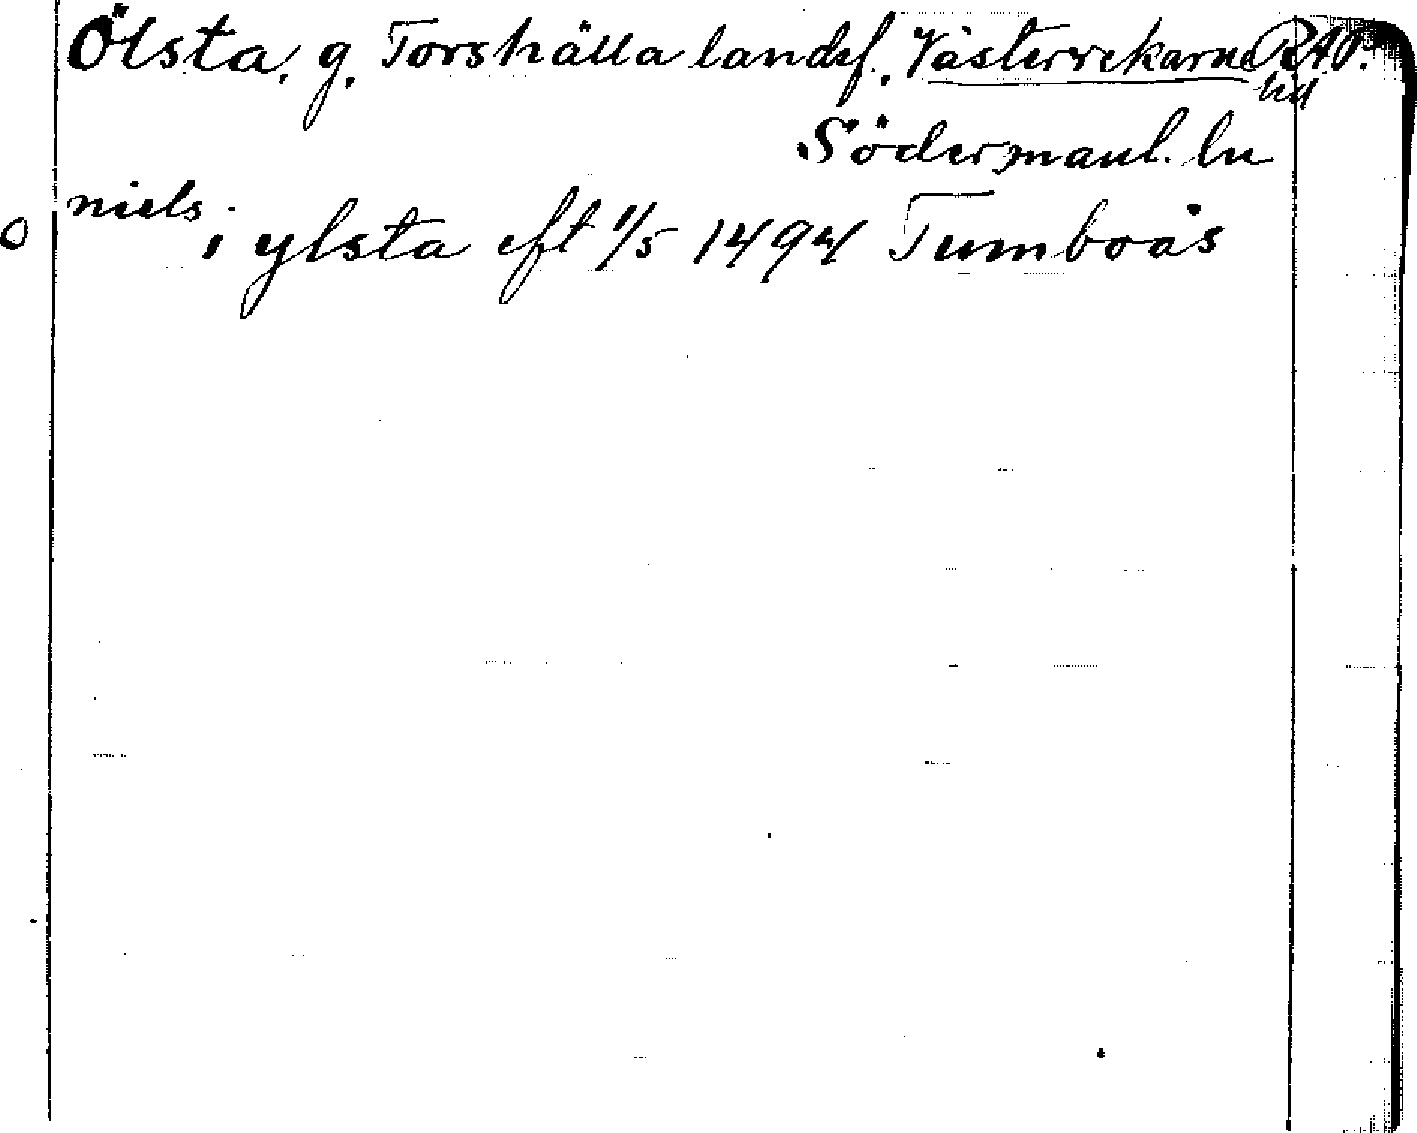 Ölsta, g. Torshälla landsf. Västerrekarne RAP.
hd
Södermanl. ln
niels i ylsta eft 1/5 1494 Tumboås